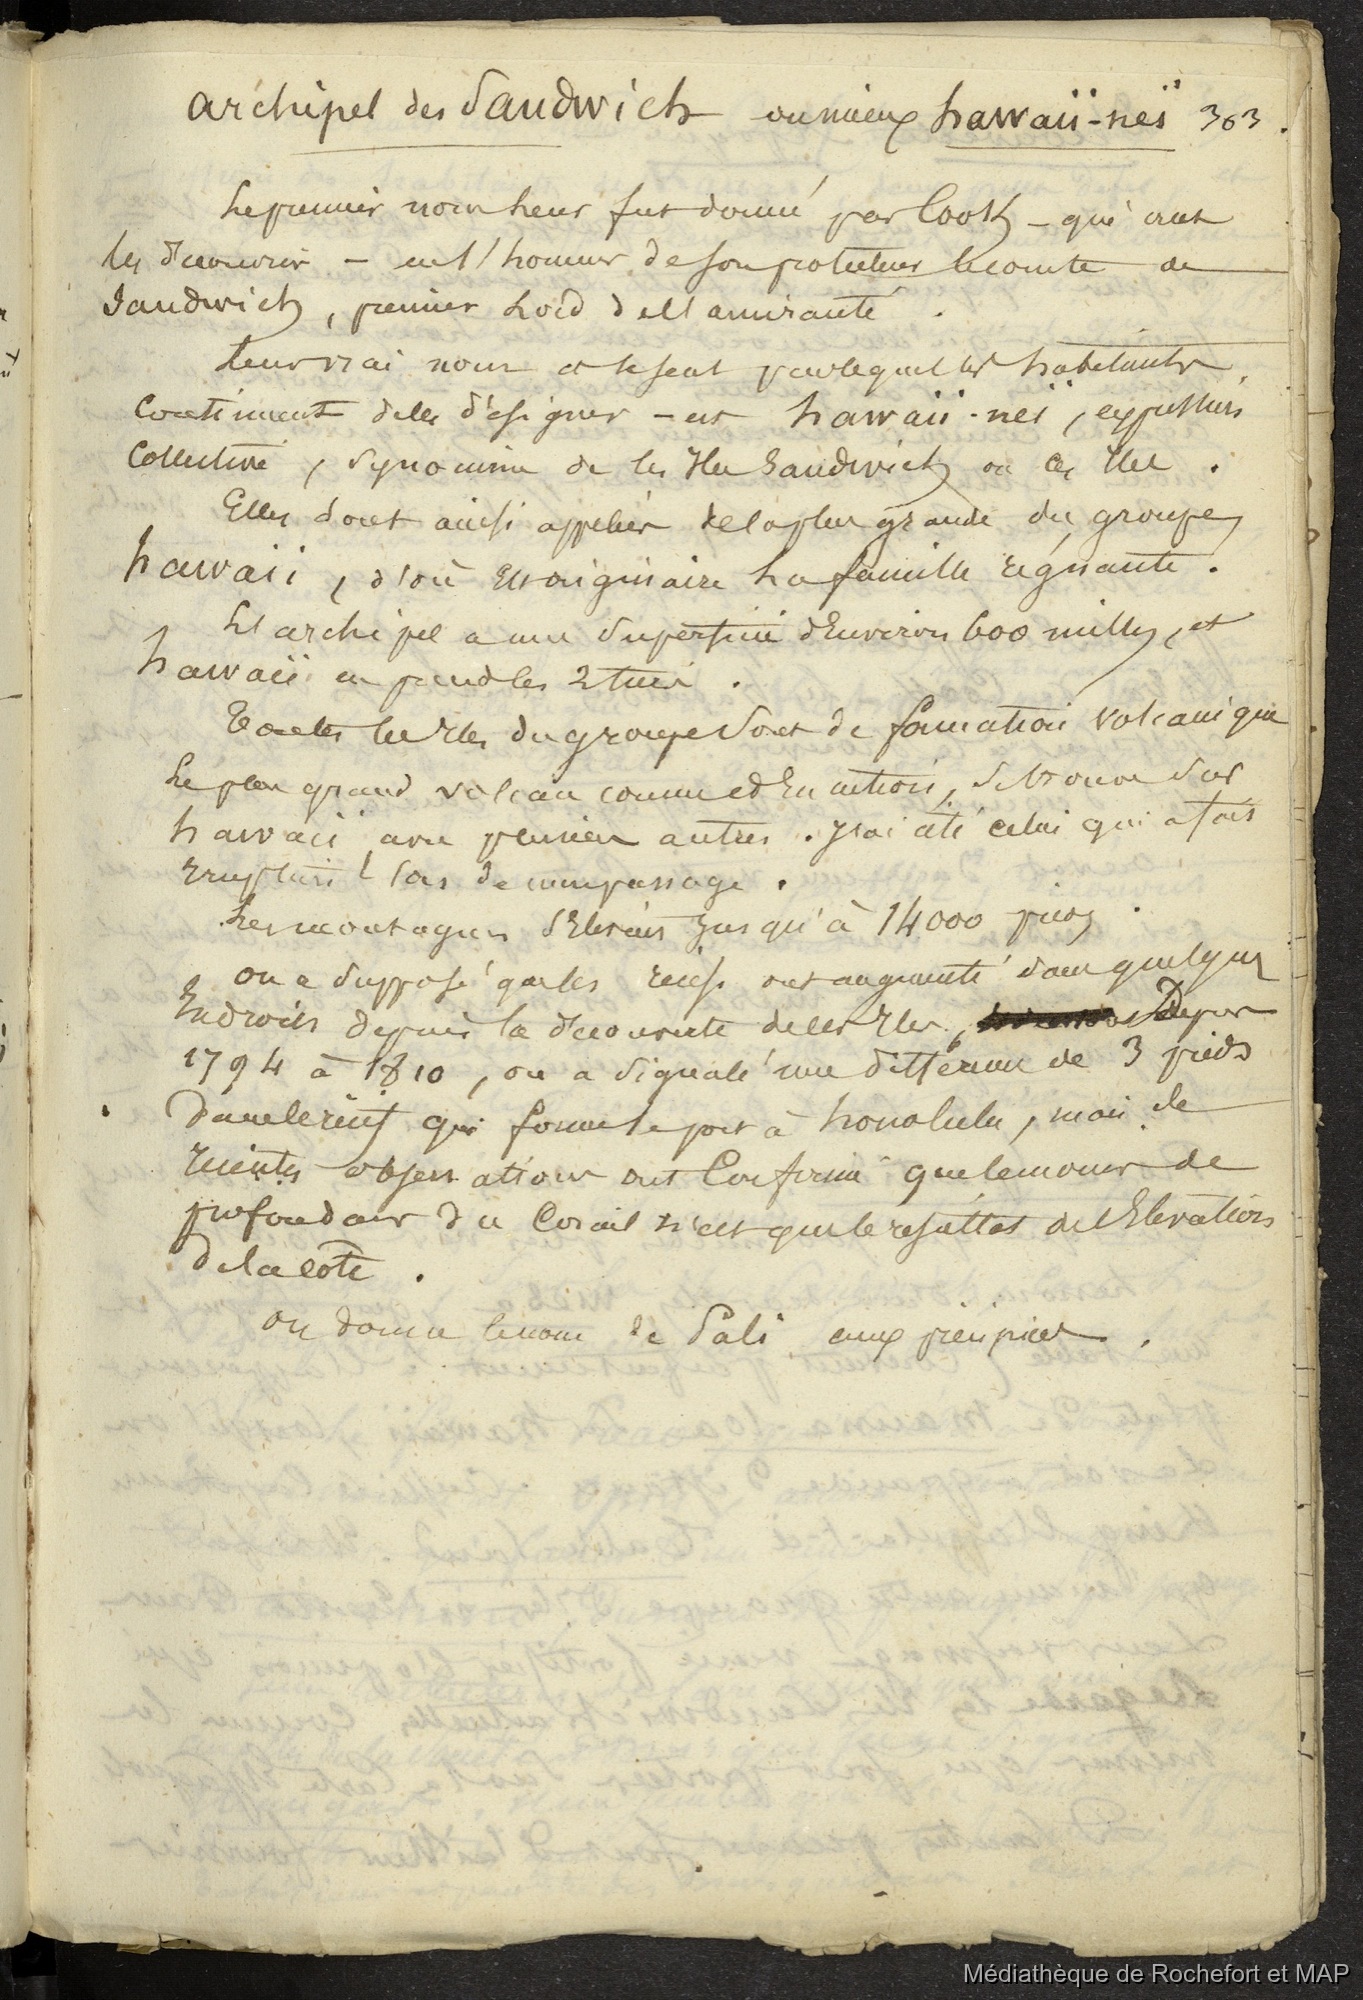 archipel des Sandwich ou mieux hawaii-neï 363.
Le premier nom leur fut donné par Cook - qui crut
les découvrir - en l'honneur de son protecteur le comte de
Sandwich, premier Lord de l'amirauté.
Leur vrai nom et le seul par lequel les habitants
Continuent de les désigner - est hawaii-neï, expression
Collective, synonime de les Iles Sandwich ou ces Iles.
Elles sont ainsi appelées de la plus grande du groupe
hawaii, d'où Est originaire La famille régnante.
L'archipel a une superficie d'Environ 600 milles, et
hawaii en prend les 2 tiers.
Toutes les Iles du groupe sont de formation volcanique
Le plus grand volcan connu et En action, se trouve sur
hawaii avec plusieurs autres. c'était celui qui a fait
Eruption lors de mon passage.
Les montagnes s'Elevent jusqu'à 14000 pieds.
on a supposé que les recifs ont augmenté dans quelques
Endroits depuis la découverte de ces Iles, Depuis
1794 à 1810, on a signalé une différence de 3 pieds
dans le récif qui forme le port à honolulu, mais de
récentes observations ont Confirmé que le moins de
profondeur du Corail n'est que le résultat de l'Elevation
de la côte.
on donne le nom de Pali aux précipices.
Médiathèque de Rochefort et MAP